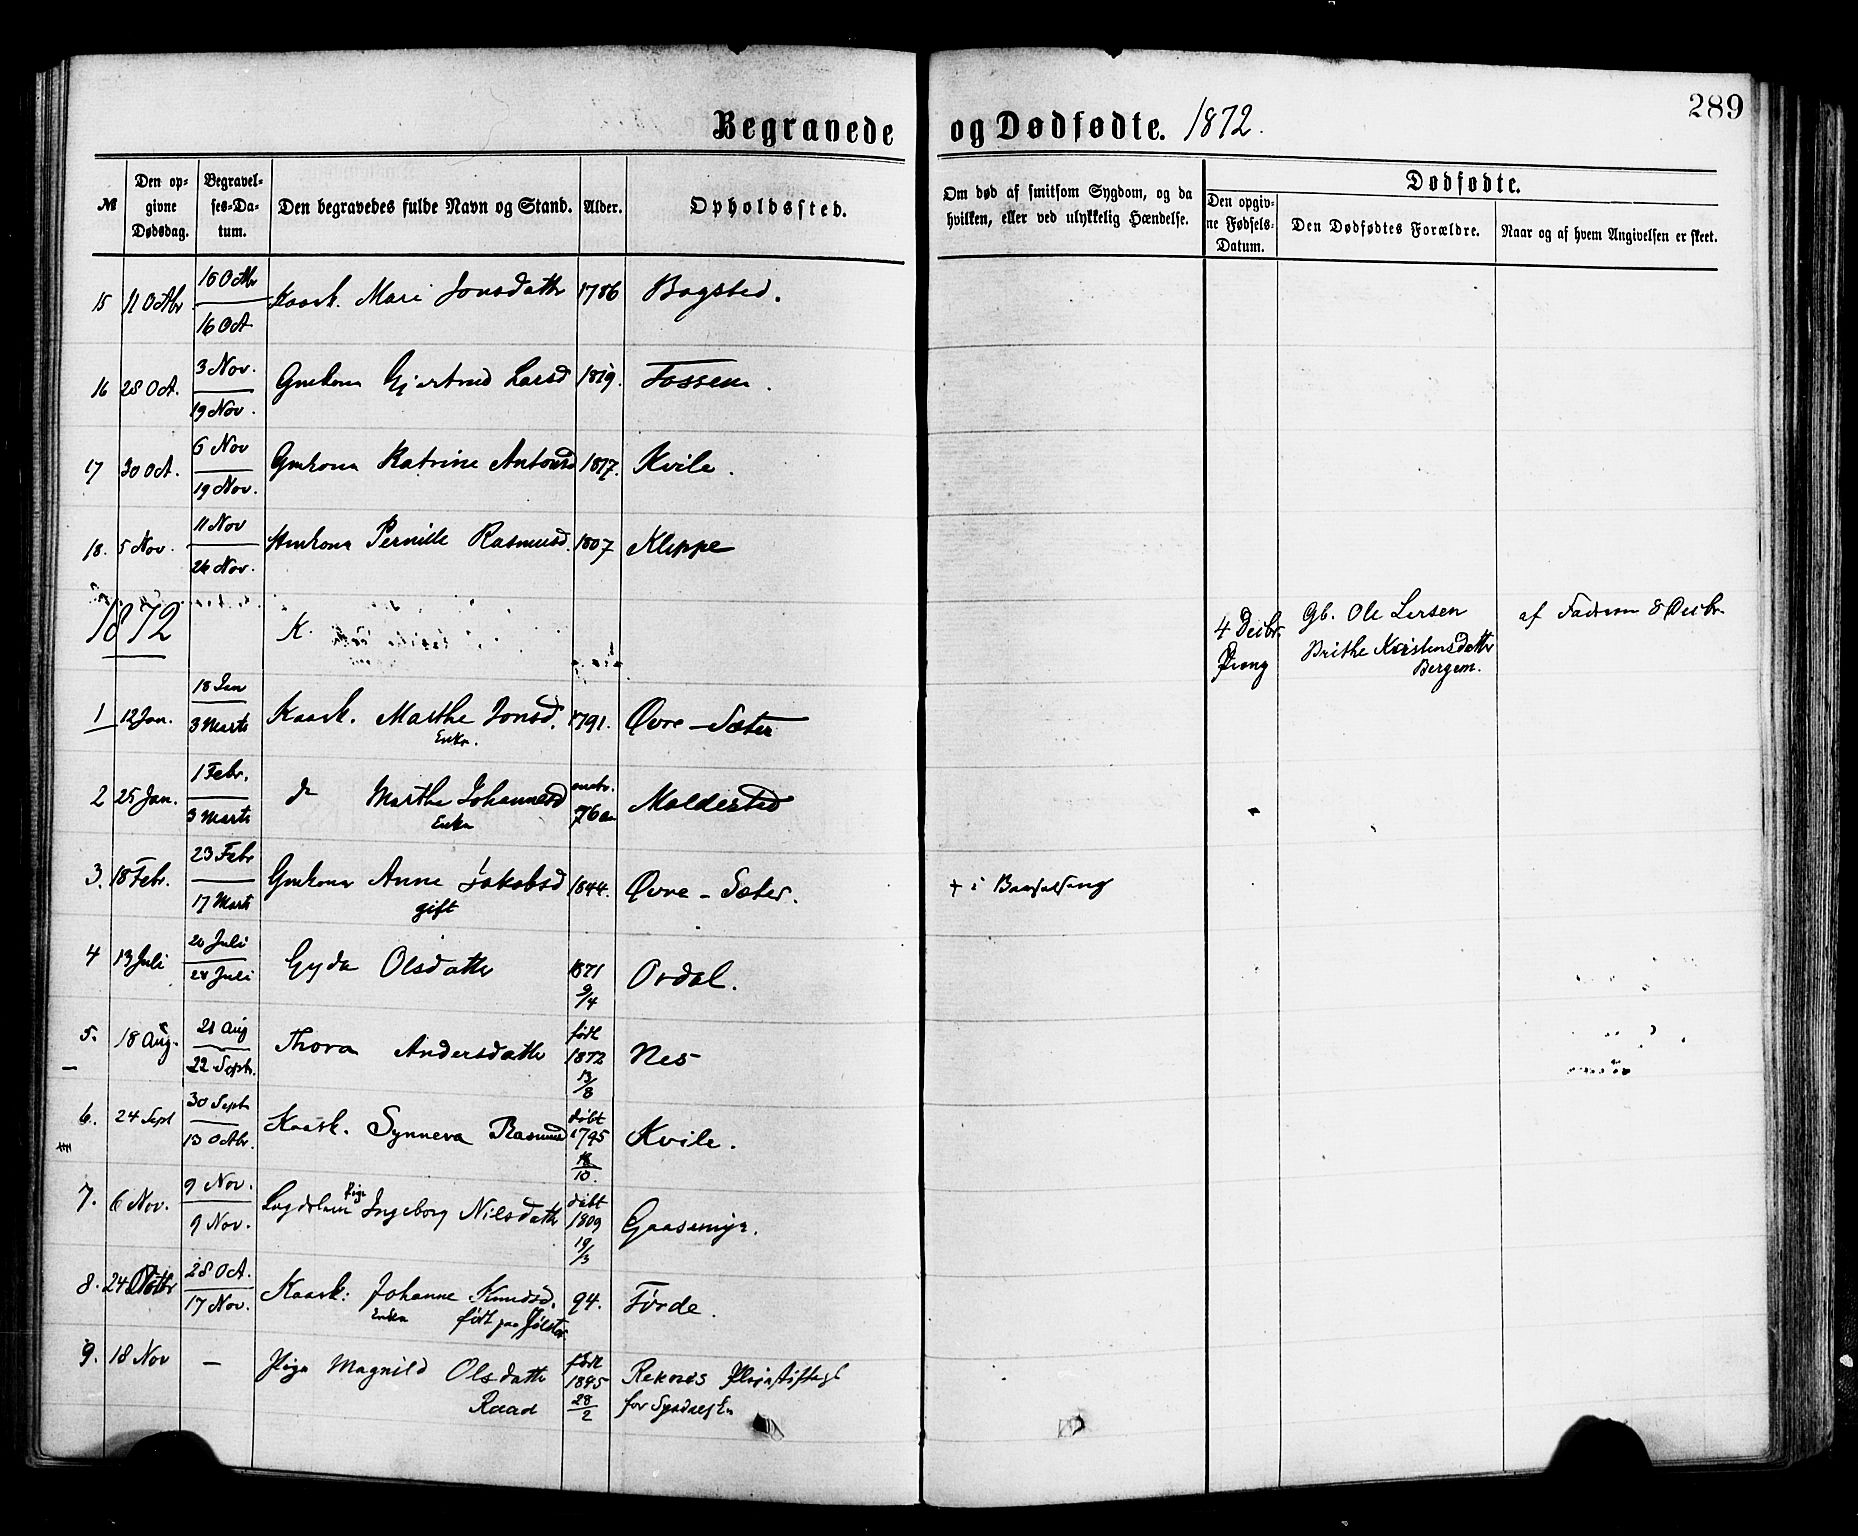 289
Begravede og Dødfødte. 1872.
№
Den op-
givne
Dødsdag.
Begravel-
ses-Da-
tum.
Den begravedes fulde Navn og Stand.
Alder.
Opholdssted.
Om død af smitsom Sygdom, og da
hvilken, eller ved ulykkelig Hændelse.
Dødfødte.
Den opgiv-
ne Fødsels-
Datum.
Den Dødfødtes Forældre.
Naar og af hvem Angivelsen er skeet.
15 11 Octbr 16 Octbr
16 Oct Kaark. Mari Jonsdatter 1786 Bogsted.
16 28 Oct. 3 Nov.
19 Nov. Gmkona Gjertrud Larsd 1819. Fossem.
17 30 Oct. 6 Nov
19 Nov. Gmkona Katrine Antonsd 1817. Kvile.
18. 5 Nov. 11 Nov
26 Nov. Gmkona Pernille Rasmusd. 1807 Kleppe
1872 K.
4 Decbr.
Gb. Ole Larsen
af Faderen 8 Decbr
Dreng
Brithe Kristensdatter
Bergem.
1 12 Jan. 18 Jan
3 Marts Kaark. Marthe Jonsd. 1791. Øvre-Sæter
Enke.
2 25 Jan. 1 Febr.
3 Marts do Marthe Johannesd omtr.
76 aar Moldestad
Enke
3. 18 Febr. 23 Febr
17 Marts Gmkona Anne Jakobsd 1844. Øvre-Sæter. + i Barselseng
gift
4 13 Juli 20 Juli
28 Juli Gyda Olsdatter 1871
9/4 Ordal.
5. 18 Aug. 21 Aug
22 Septr. Thora Andersdatter født
1872
13/8 Nes
6. 24 Sept 30 Septr
13 Octbr. Kaark. Synneva Rasmusd døbt
1795
18/10. Kvile.
7. 6 Nov. 9 Nov.
9 Nov. Lægdslem Pige Ingeborg Nilsdatter døbt
1809
19/3 Gaasemyr.
8. 24 Octbr 28 Oct.
17 Nov. Kaark: Johanne Knudsd. 94. Førde.
Enke født paa Jølster
9. 18 Nov – Pige Magnild Olsdatter
Raad født
1845
28/2 Reknes Pleiestiftelse
for Spedalske